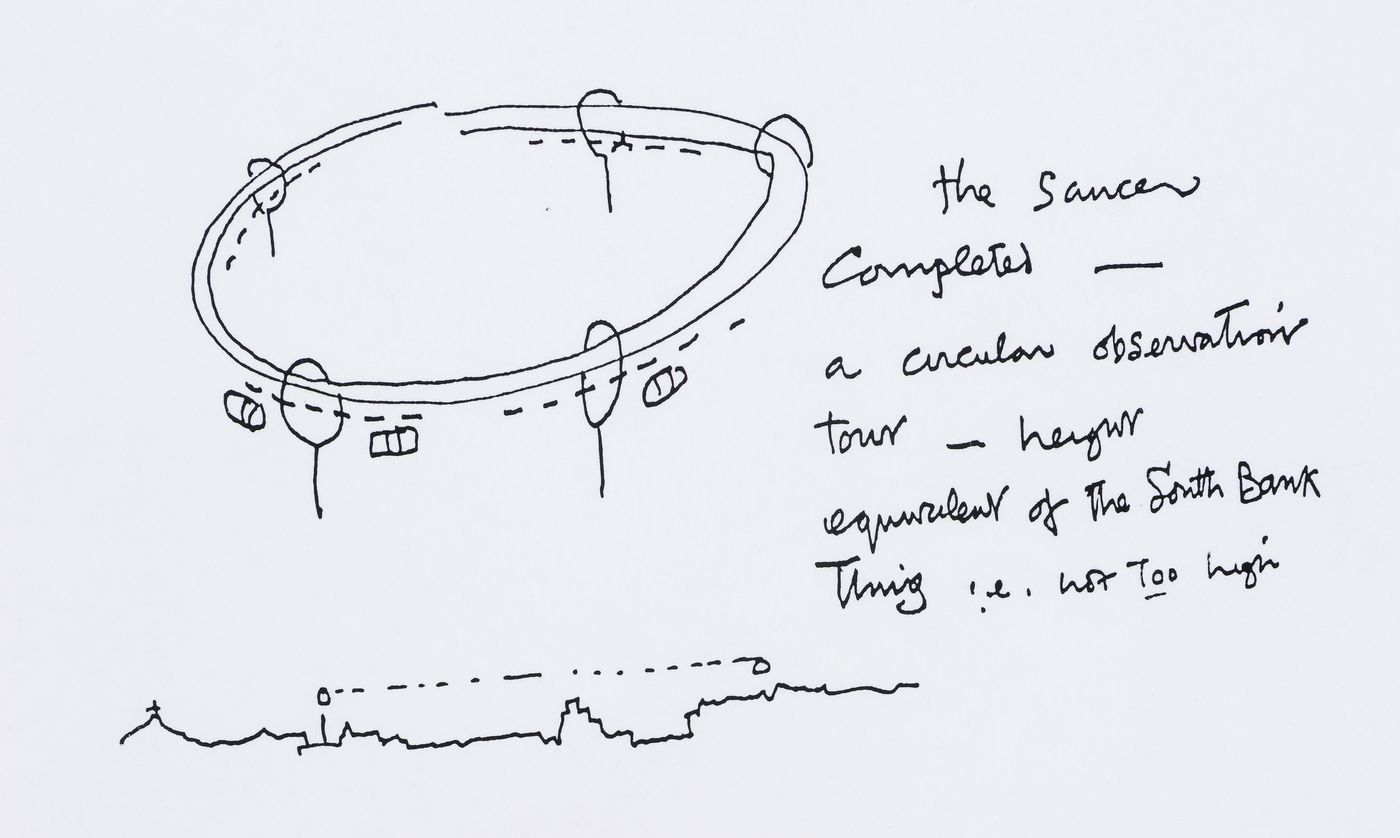 the saucer
Completed —
a circular observation
tour — height
equivalent of the South Bank
Thing i.e. not Too high